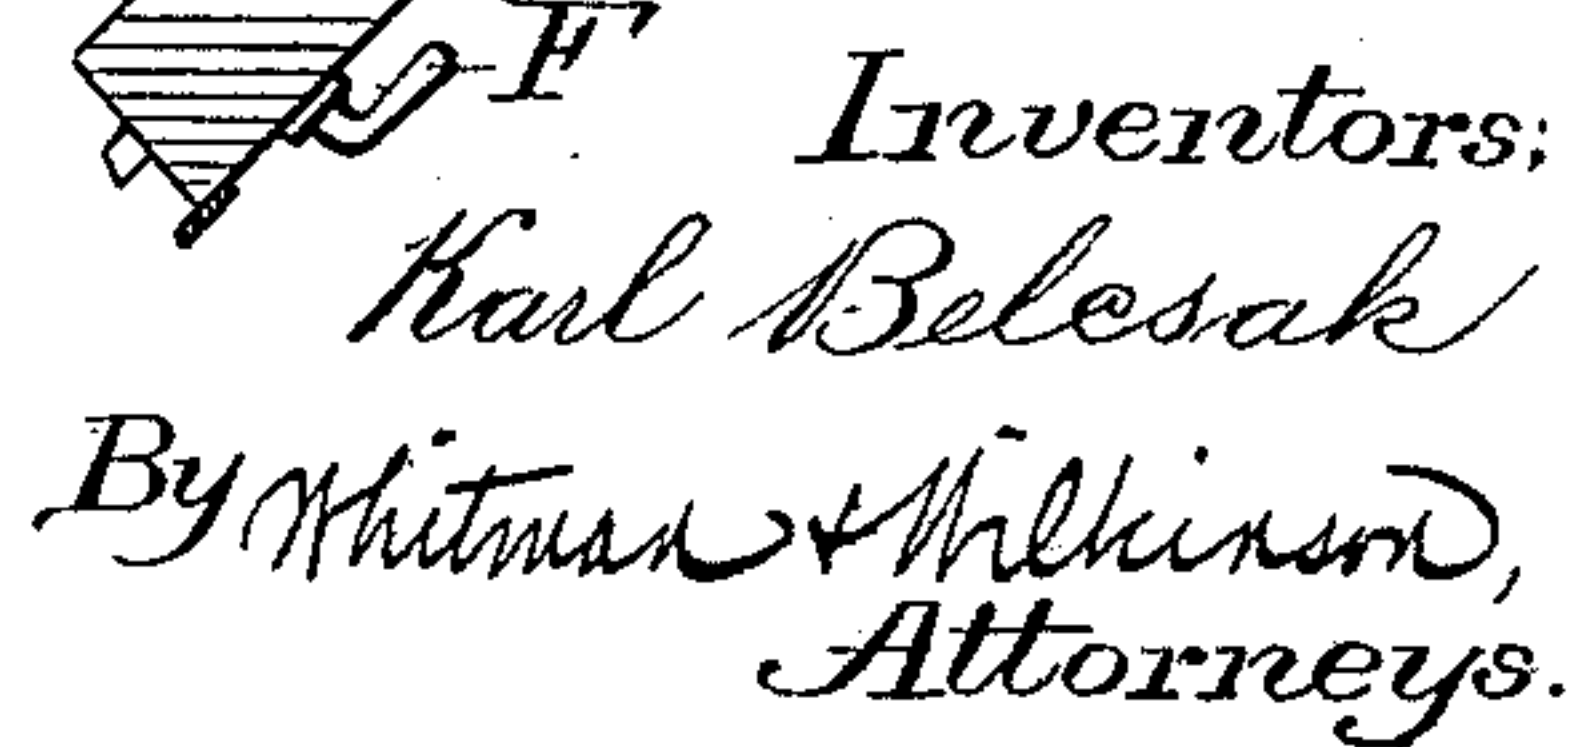 F
Inventors;
Karl Belcsak
By Whitman & Wilkinson,
Attorneys.